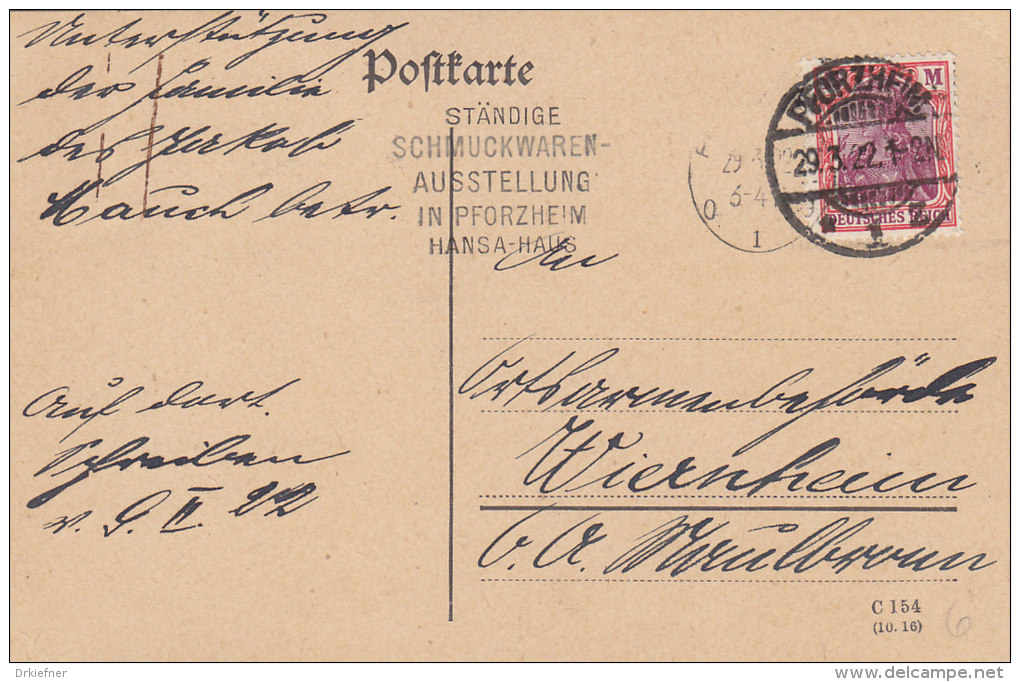 Unterstützung
der Familie
des Jakob
Kauch betr.
Auf dort.
Schreiben
v. 9. II. 22
Postkarte
STÄNDIGE
SCHMUCKWAREN-
AUSSTELLUNG
IN PFORZHEIM
HANSA-HAUS
29.3.
3-4
1
PFORZHEIM
29.3.22.1-2N.
1
M
DEUTSCHES REICH
An
Ortsarmenbehörde
Wiernheim
O. A. Maulbronn
C 154
(10. 16)
6
Drkiefner
www.delcampe.net